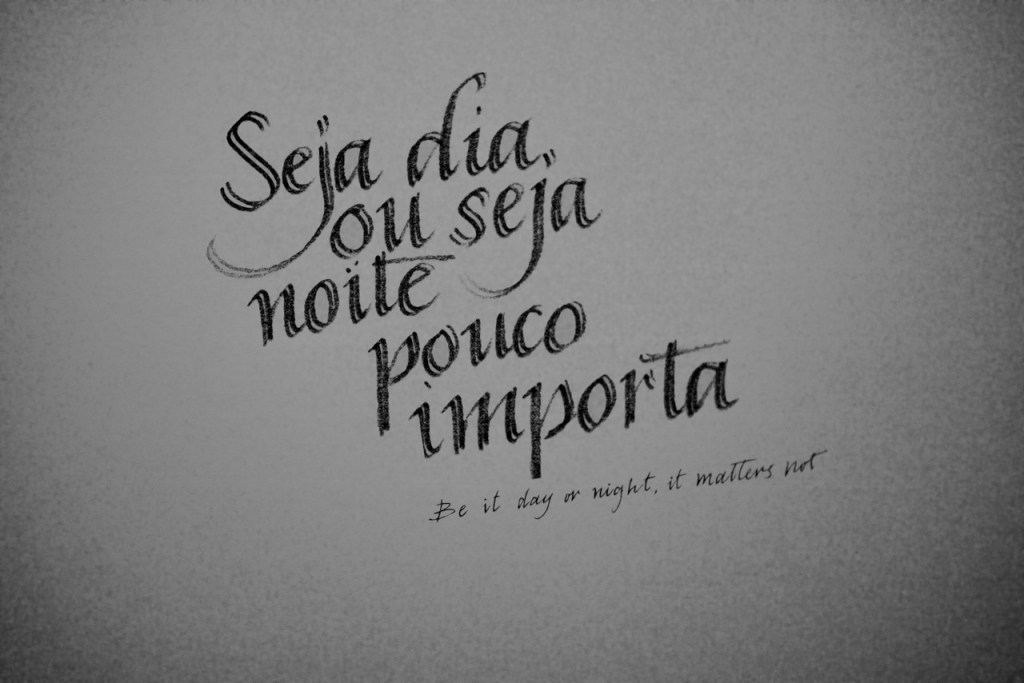 Seja dia,
ou seja
noite
pouco
importa
Be it day or night, it matters not